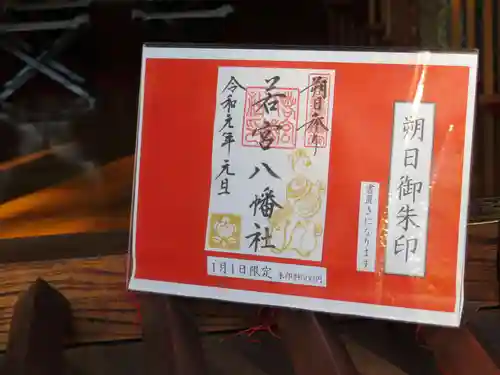 朔日御朱印
書置きになります
朔日参り
若宮八幡社
令和元年 元旦
1月1日限定